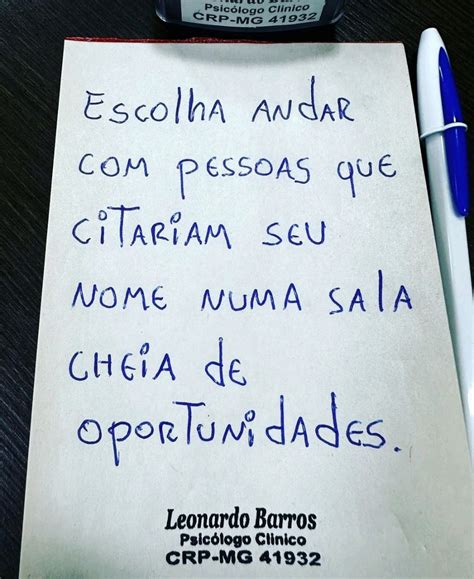 Psicólogo Clínico
CRP-MG 41932
EScolhA ANdAR
COM PESSOAS QUE
CiTARiAM SEU
NOME NUMA SAlA
CHEiA dE
OPORTUNidAdES.
Leonardo Barros
Psicólogo Clínico
CRP-MG 41932